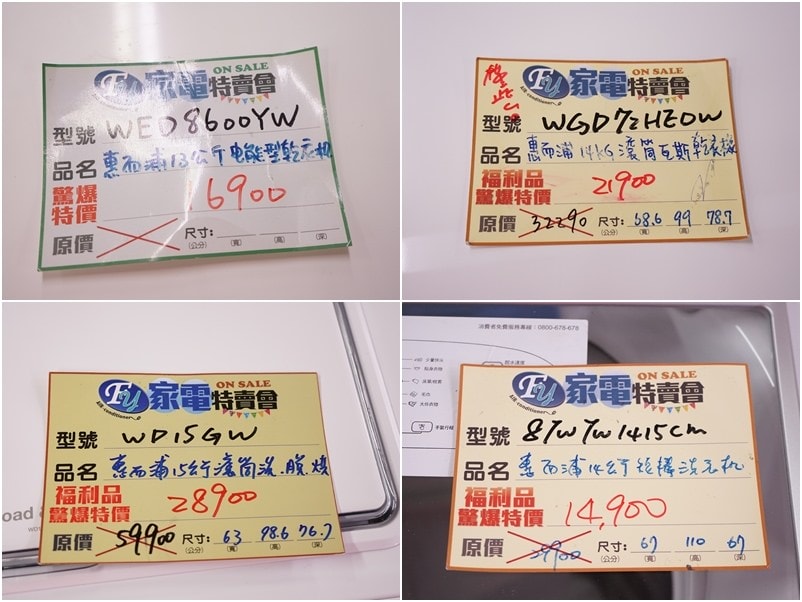 FY 家電特賣會 ON SALE
Air-conditioner
型號 WED8600YW
品名 惠而浦13公斤电能型乾衣机
驚爆特價 16900
原價 尺寸:
(公分) (寬) (高) (深)
FY 家電特賣會 ON SALE
Air-conditioner
型號 WGD72HEDW
品名 惠而浦14KG滾筒瓦斯乾衣機
福利品
驚爆特價 21900
原價 32290 尺寸: 68.6 99 78.7
(公分) (寬) (高) (深)
FY 家電特賣會 ON SALE
Air-conditioner
型號 WD15GW
品名 惠而浦15公斤滾筒洗.脫.烘
福利品
驚爆特價 28900
原價 59900 尺寸: 63 98.6 76.7
(公分) (寬) (高) (深)
消費者免費服務專線:0800-678-678
FY 家電特賣會 ON SALE
Air-conditioner
型號 8TWTW1415CM
品名 惠而浦14公斤短棒洗衣机
福利品
驚爆特價 14,900
原價 39900 尺寸: 67 110 67
(公分) (寬) (高) (深)